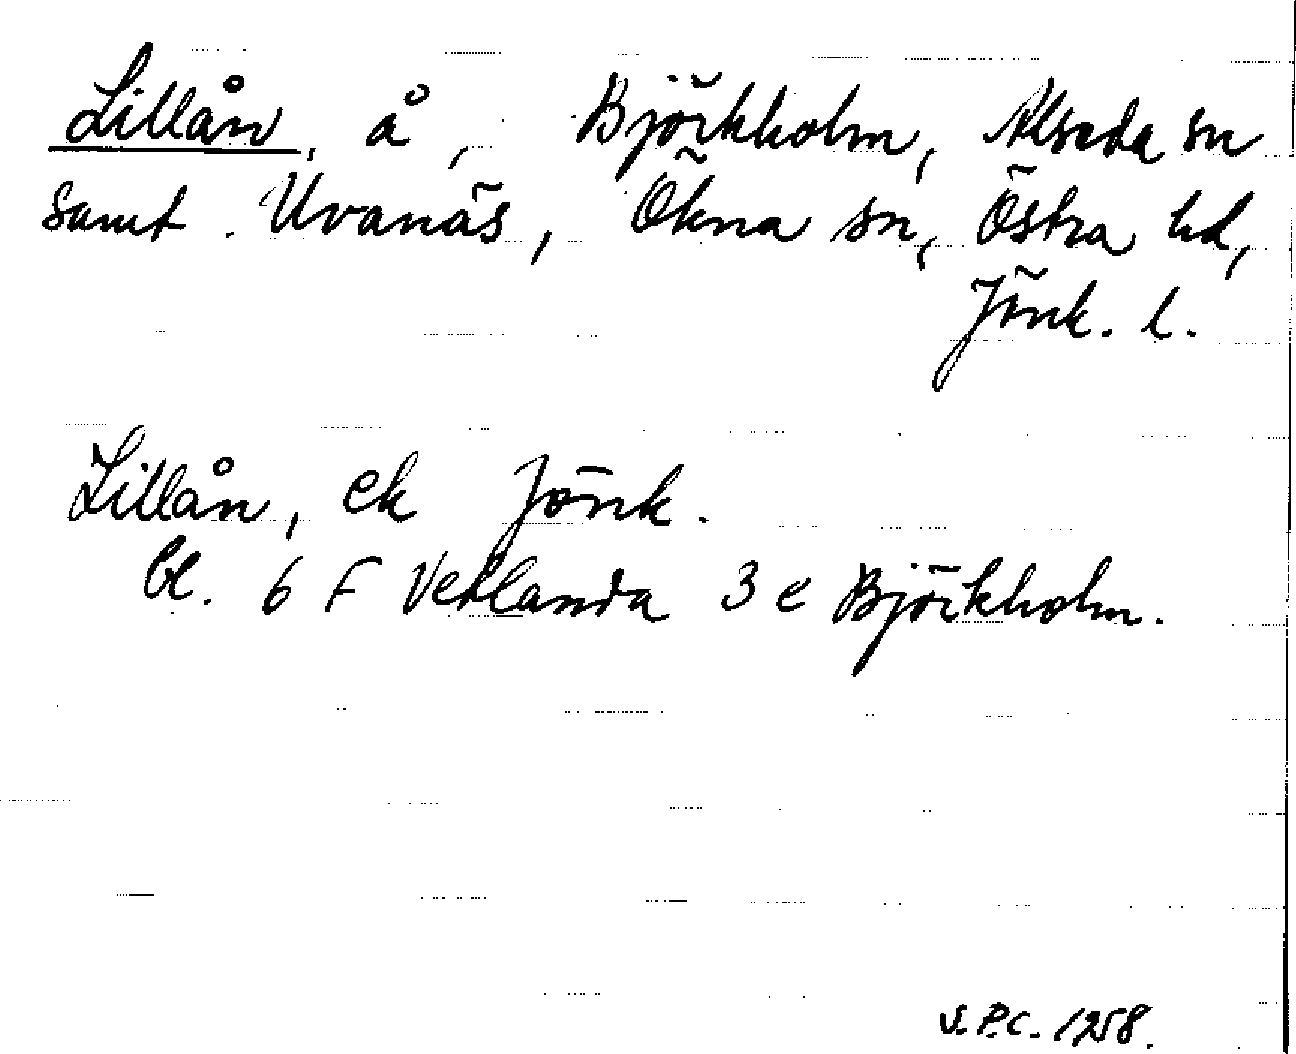 Lillån, å, Björkholm, Alseda sn
samt Uvanäs, Ökna sn, Östra hd,
Jönk. l.
Lillån, ek Jönk.
bl. 6 F Vetlanda 3 e Björkholm.
P.C. 1958.